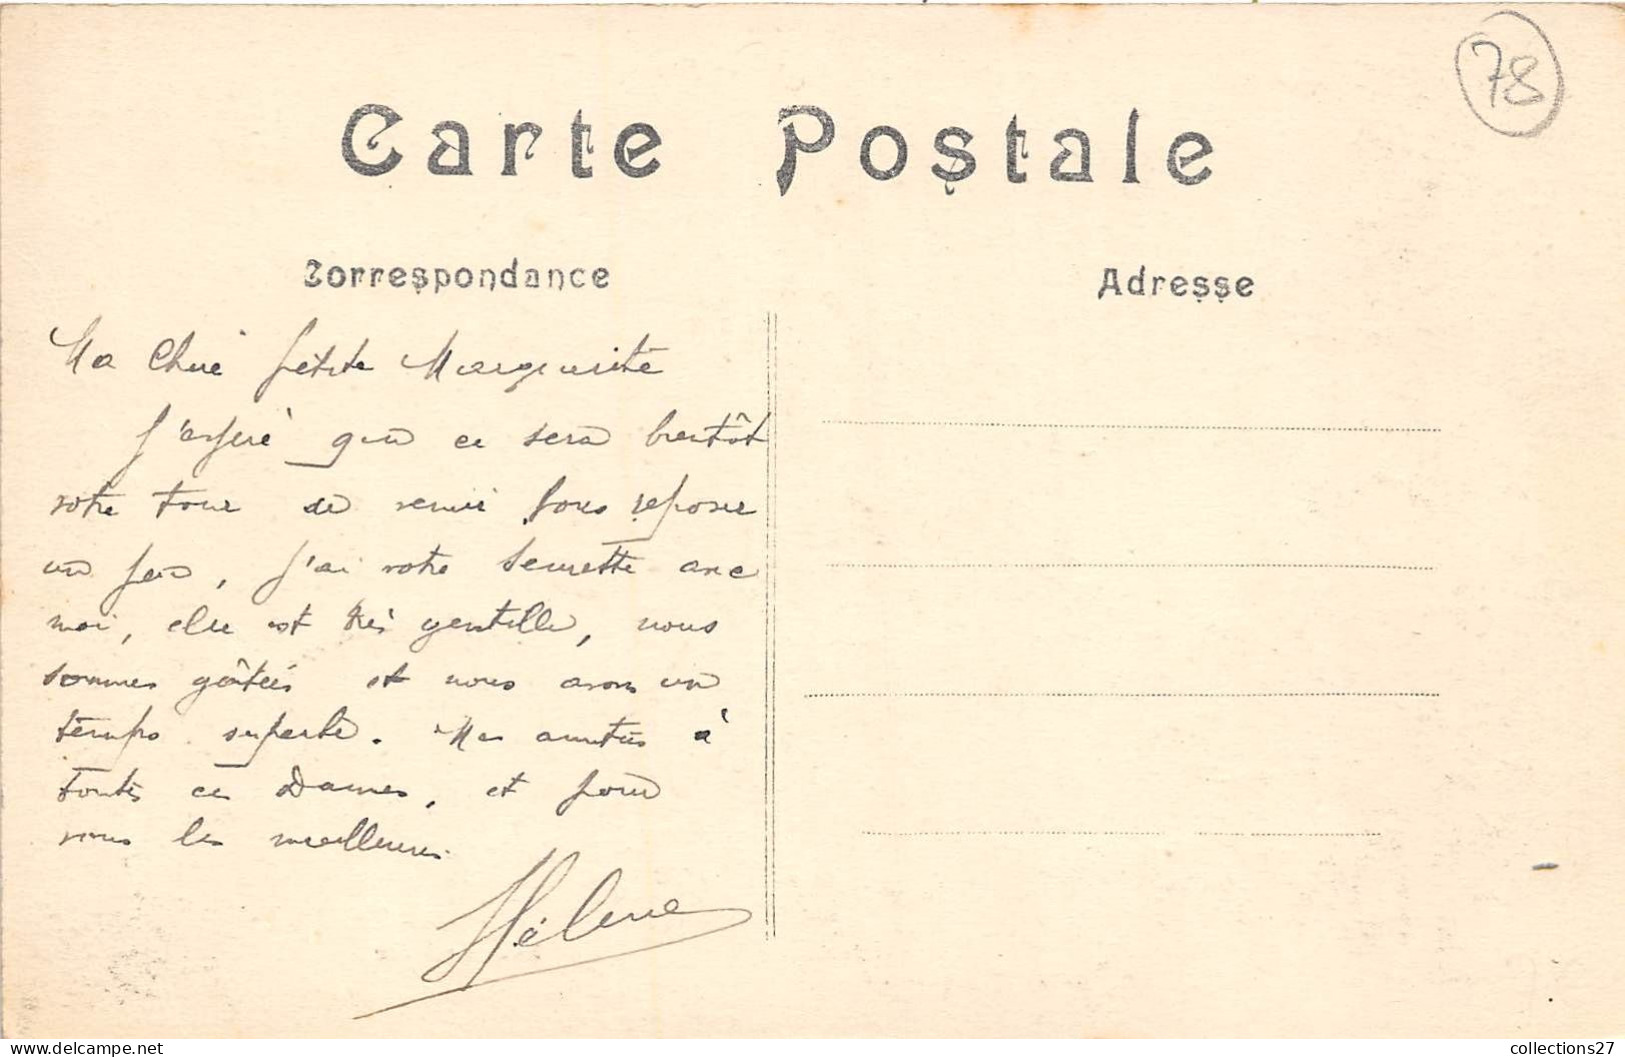 78
Carte Postale
Correspondance
Adresse
Ma Chère petite Marguerite
J'espère que ce sera bientôt
votre tour de venir vous reposer
un peu, j'ai votre avec
moi, elle est très gentille, nous
sommes gâtées et nous avons un
temps superbe. Mes amitiés à
toutes ces Dames, et pour
vous les meilleures.
Hélène
collections27